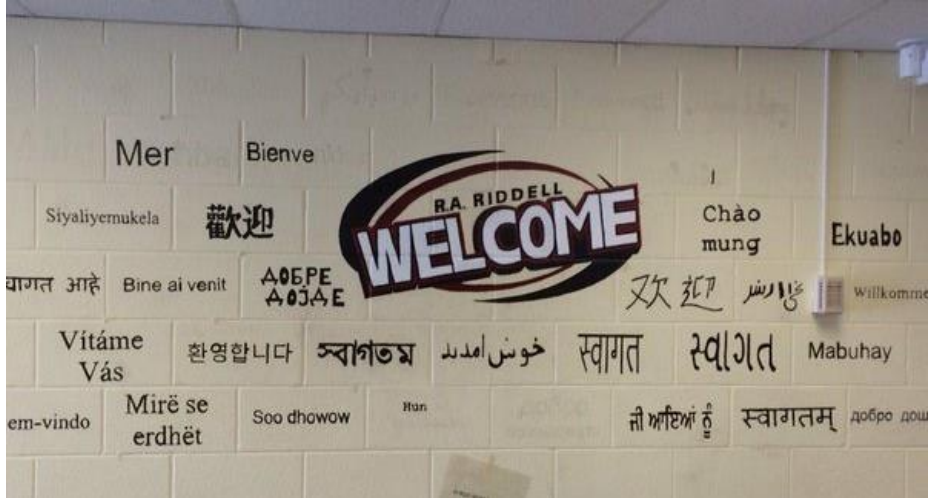 Mer Bienve
R.A. RIDDELL
WELCOME
Siyaliyemukela 歡迎 Chào
mung Ekuabo
आहे Bine ai venit ДОБРЕ
ДОЈДЕ 欢迎 Willkomme
Vítáme
Vás 환영합니다 স্বাগতম خوش آمدید स्वागत સ્વાગત Mabuhay
em-vindo Mirë se
erdhët Soo dhowow Hun ਜੀ ਆਇਆਂ ਨੂੰ स्वागतम् добро дош